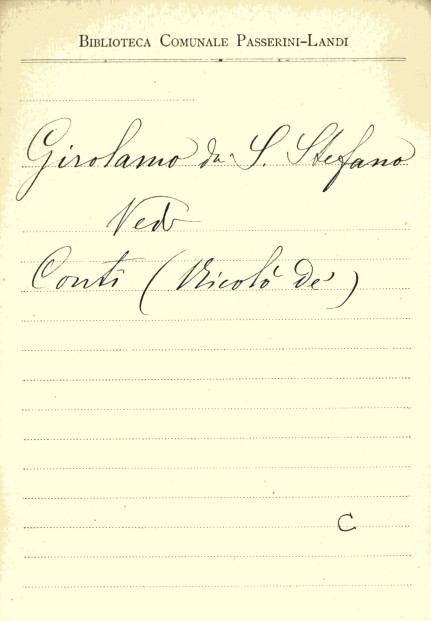 BIBLIOTECA COMUNALE PASSERINI-LANDI
Girolamo da S. Stefano
Vedi
Conti (Nicolò de')
C